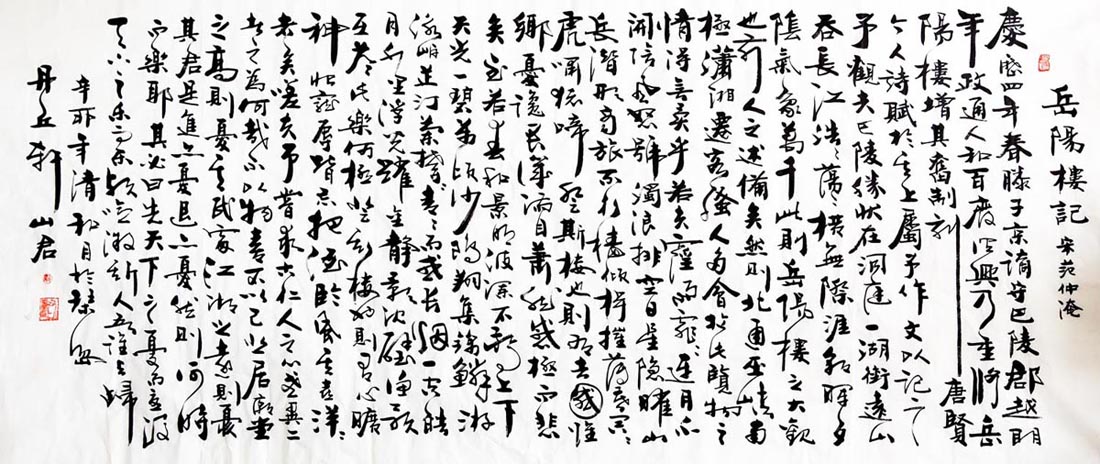 岳陽樓記 宋范仲淹
慶曆四年春滕子京謫守巴陵郡越明
年政通人和百廢具興乃重脩岳
陽樓增其舊制刻唐賢
今人詩賦於其上屬予作文以記之
予觀夫巴陵勝狀在洞庭一湖銜遠山
吞長江浩浩蕩蕩橫無際涯朝暉夕
陰氣象萬千此則岳陽樓之大觀
也前人之述備矣然則北通巫峽南
極瀟湘遷客騷人多會於此覽物之
情得無異乎若夫霪雨霏霏連月不
開陰風怒號濁浪排空日星隱曜山
岳潛形商旅不行檣傾楫摧薄暮冥冥
虎嘯猿啼登斯樓也則有去國懷
鄉憂讒畏譏滿目蕭然感極而悲
矣至若春和景明波瀾不驚上下
天光一碧萬頃沙鷗翔集錦鱗游
泳岸芷汀蘭郁郁青青而或長烟一空皓
月千里浮光躍金靜影沉璧漁歌
互答此樂何極登斯樓也則有心曠
神怡寵辱皆忘把酒臨風其喜洋洋
者矣嗟夫予嘗求古仁人之心或異二
者之為何哉不以物喜不以己悲居廟堂
之高則憂其民處江湖之遠則憂
其君是進亦憂退亦憂然則何時
而樂耶其必曰先天下之憂而憂後
天下之樂而樂歟噫微斯人吾誰與歸
辛卯年清和月於
丹丘軒山君